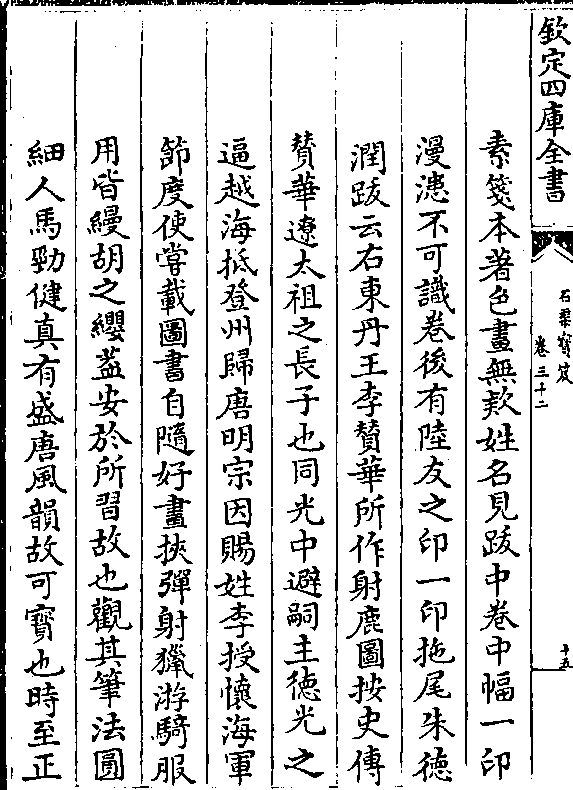 欽定四庫全書
石渠寳笈
卷三十二
十五
素箋本著色畫無欵姓名見跋中卷中幅一印
漫漶不可識卷後有陸友之印一印拖尾朱徳
潤跋云右東丹王李賛華所作射鹿圖按史傳
賛華遼太祖之長子也同光中避嗣主徳光之
逼越海抵登州歸唐明宗因賜姓李授懷海軍
節度使嘗載圖書自隨好畫挾彈射獵游騎服
用皆縵胡之纓葢安於所習故也觀其筆法圓
細人馬勁健真有盛唐風韻故可寳也時至正